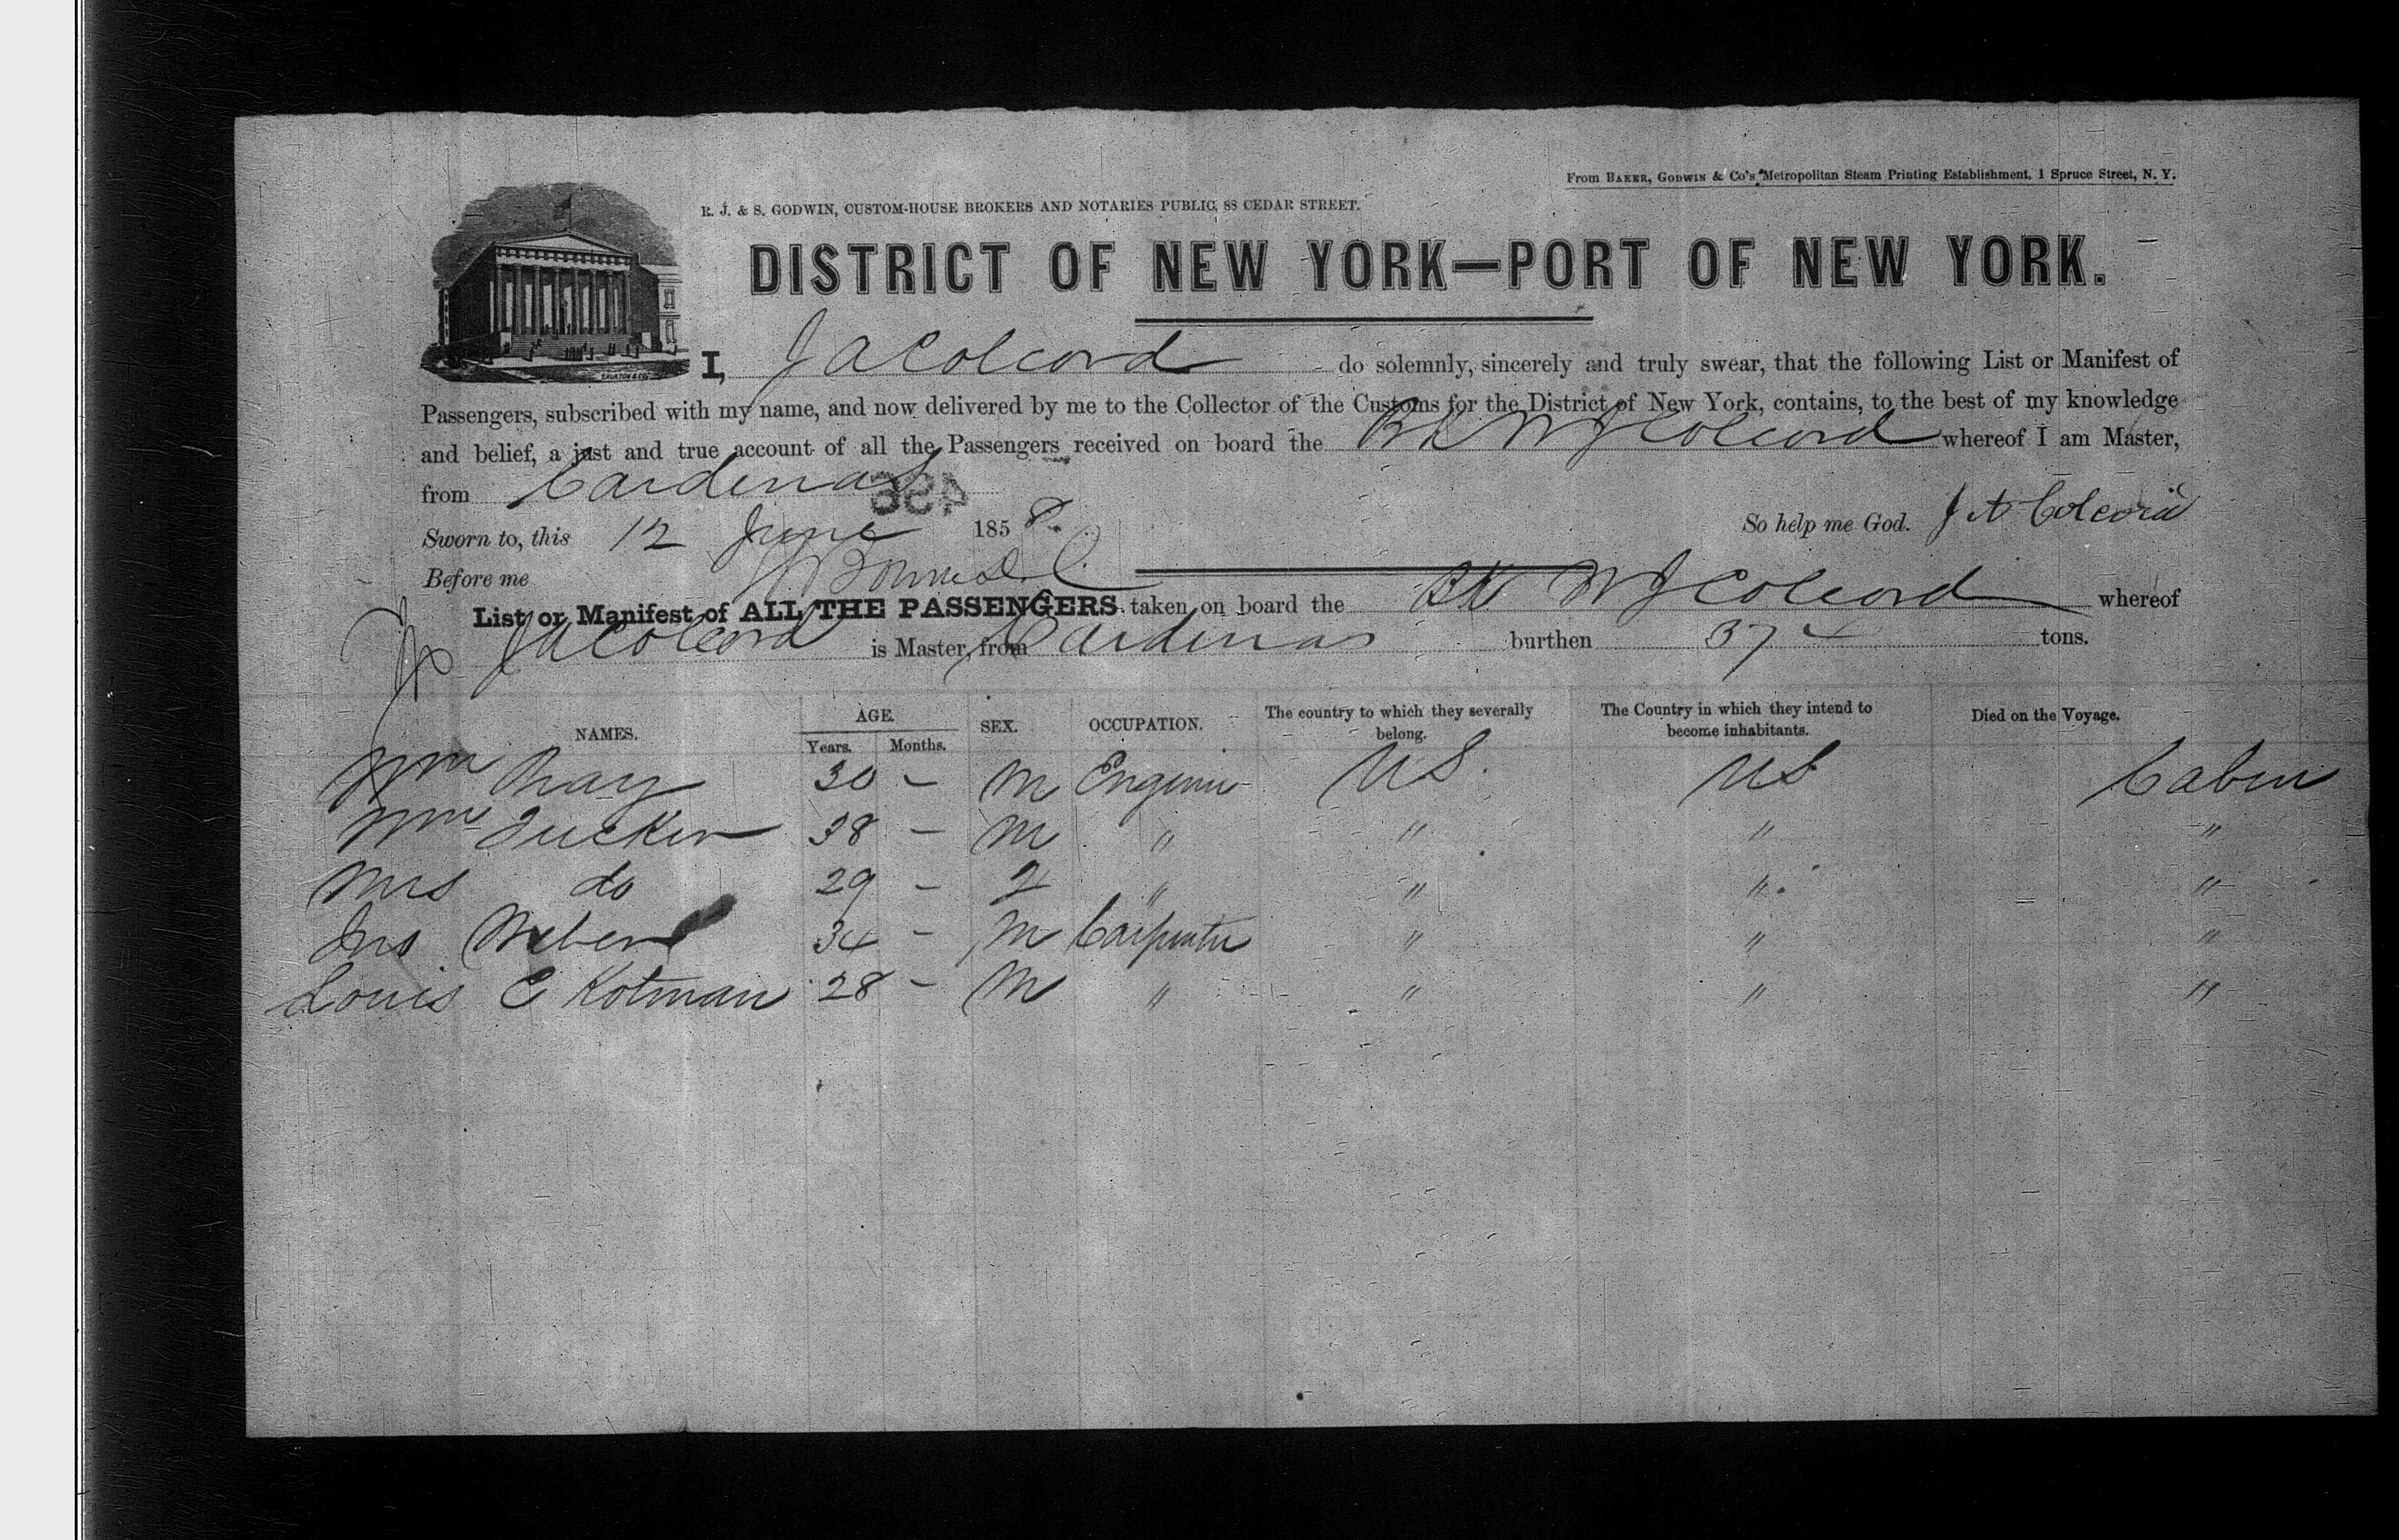 From BAKER, GODWIN & Co's Metropolitan Steam Printing Establishment, 1 Spruce Street, N. Y.
R. J. & S. GODWIN, CUSTOM-HOUSE BROKERS AND NOTARIES PUBLIC, 88 CEDAR STREET.
DISTRICT OF NEW YORK—PORT OF NEW YORK.
I, J A Colcord do solemnly, sincerely and truly swear, that the following List or Manifest of
Passengers, subscribed with my name, and now delivered by me to the Collector of the Customs for the District of New York, contains, to the best of my knowledge
and belief, a just and true account of all the Passengers received on board the Bk W J Colcord whereof I am Master,
from Cardenas
Sworn to, this 12 June 1858. So help me God. J A Colcord
Before me
List or Manifest of ALL THE PASSENGERS taken on board the Bk W J Colcord whereof
J A Colcord is Master, from Cardenas burthen 37 tons.
NAMES. AGE. Years. Months. SEX. OCCUPATION. The country to which they severally belong. The Country in which they intend to become inhabitants. Died on the Voyage.
Wm Ray 30 - M Engineer US. US Cabin
Wm Tucker 38 - M " " " "
Mrs do 29 - F " " " "
Jno Weber 34 - M Carpenter " " "
Louis E Kotman 28 - M " " " "